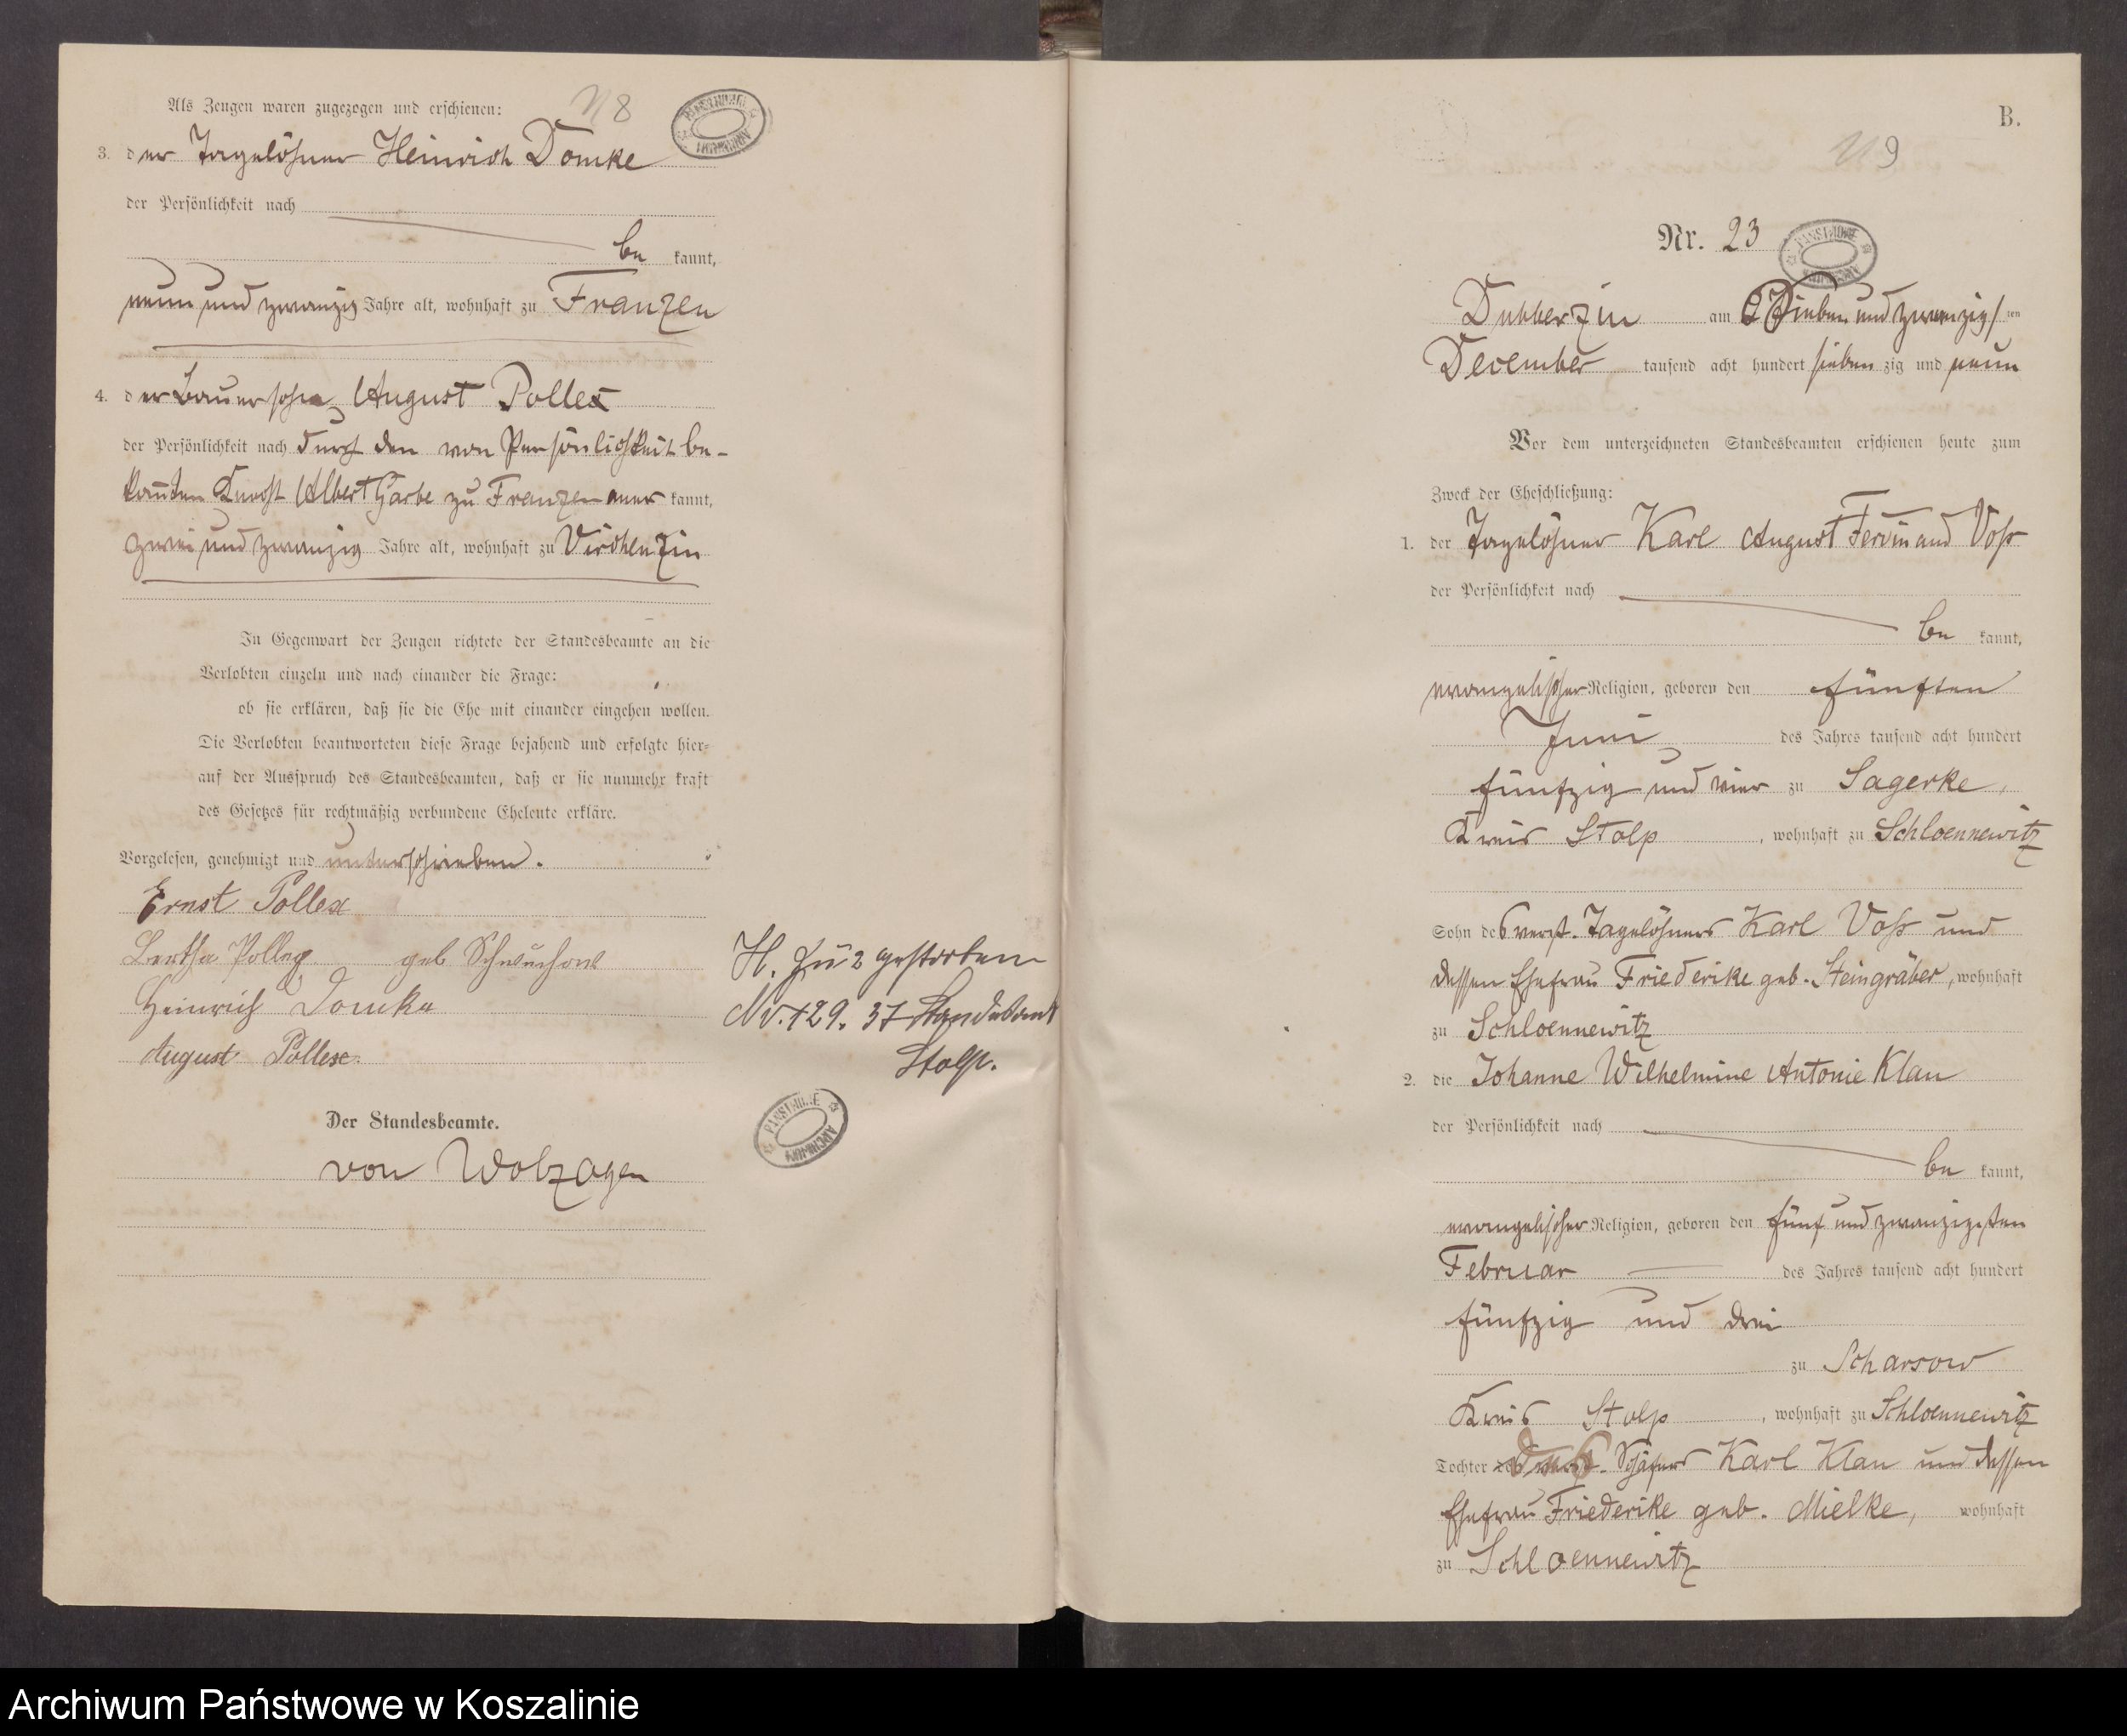 Als Zeugen waren zugezogen und erschienen:
118
3. der Tagelöhner Heinrich Domke
der Persönlichkeit nach
be kannt,
neun und zwanzig Jahre alt, wohnhaft zu Franzen
4. der Bauersohn August Pollex
der Persönlichkeit nach durch den von Persönlichkeit be-
kannten Knecht Albert Garbe zu Franzen aner kannt,
zwei und zwanzig Jahre alt, wohnhaft zu Virchenzin
In Gegenwart der Zeugen richtete der Standesbeamte an die
Verlobten einzeln und nach einander die Frage:
ob sie erklären, daß sie die Ehe mit einander eingehen wollen.
Die Verlobten beantworteten diese Frage bejahend und erfolgte hier-
auf der Ausspruch des Standesbeamten, daß er sie nunmehr kraft
des Gesetzes für rechtmäßig verbundene Eheleute erkläre.
Vorgelesen, genehmigt und unterschrieben.
Ernst Pollex
Bertha Pollex geb
Heinrich Domke
August Pollex.
H. zu 2 gestorben
Nr. 129. 37 Standesamt
Stolp.
Der Standesbeamte.
von Wolzogen
PAŃSTWOWE ARCHIWUM
B.
119
Nr. 23
PAŃSTWOWE ARCHIWUM
Dubberzin am Sieben und zwanzigs ten
December tausend acht hundert sieben zig und neun
Vor dem unterzeichneten Standesbeamten erschienen heute zum
Zweck der Eheschließung:
1. der Tagelöhner Karl August Ferdinand Voß
der Persönlichkeit nach
be kannt,
evangelischer Religion, geboren den fünften
Juni des Jahres tausend acht hundert
fünfzig und vier zu Sagerke,
Kreis Stolp, wohnhaft zu Schloennewitz
Sohn des verst. Tagelöhners Karl Voß und
dessen Ehefrau Friederike geb. Steingräber, wohnhaft
zu Schloennewitz
2. die Johanne Wilhelmine Antonie Klau
der Persönlichkeit nach
be kannt,
evangelischer Religion, geboren den fünf und zwanzigsten
Februar des Jahres tausend acht hundert
fünfzig und drei
zu Scharsow
Kreis Stolp, wohnhaft zu Schloennewitz
Tochter des Schäfers Karl Klau und dessen
Ehefrau Friederike geb. Mielke, wohnhaft
zu Schloennewitz
Archiwum Państwowe w Koszalinie